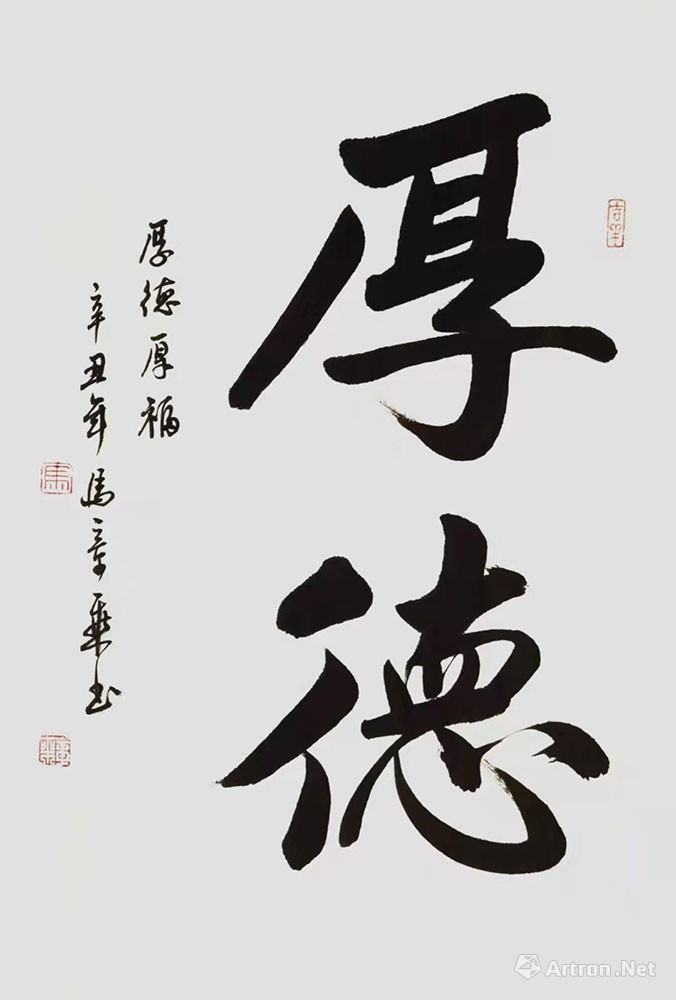 厚德
厚德厚福
辛丑年馬章乘书
馬
Artron.Net